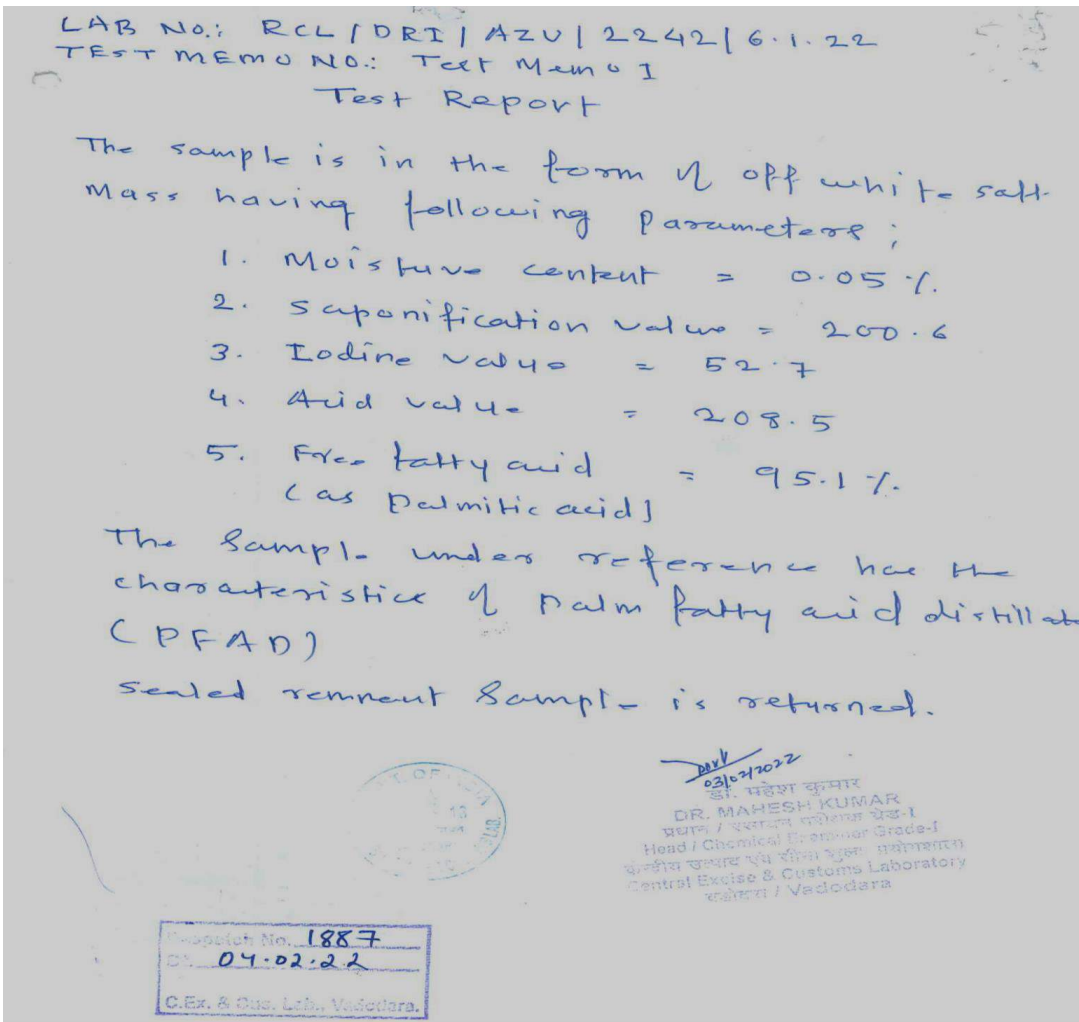 LAB No.: RCL/DRI/AZU/2242/6.1.22
TEST MEMO NO.: Test Memo I
Test Report
The sample is in the form of off white soft
Mass having following Parameters;
1. Moisture content = 0.05 %.
2. Saponification value = 200.6
3. Iodine value = 52.7
4. Acid value = 208.5
5. Free fatty acid = 95.1 %.
(as Palmitic acid)
The Sample under reference has the
characteristics of Palm fatty acid distillate
(PFAD)
Sealed remnant Sample is returned.
03/02/2022
डॉ. महेश कुमार
DR. MAHESH KUMAR
Head / Chemical Examiner Grade-I
Central Excise & Customs Laboratory
वडोदरा / Vadodara
Despatch No. 1887
Dt. 04.02.22
C.Ex. & Cus. Lab., Vadodara.